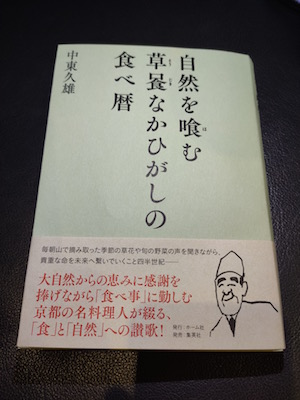 自然を喰む
草喰なかひがしの
食べ暦
中東久雄
毎朝山で摘み取った季節の草花や旬の野菜の声を聞きながら、
貴重な命を未来へ繋いでいくこと四半世紀──
大自然からの恵みに感謝を
捧げながら「食べ事」に勤しむ
京都の名料理人が綴る、
「食」と「自然」への讃歌!
発行:ホーム社
発売:集英社